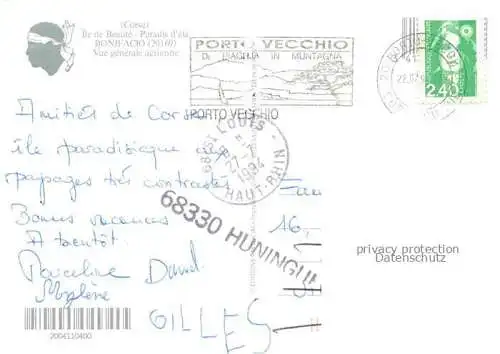 (Corse)
Île de Beauté - Paradis d'été
BONIFACIO (20169)
Vue générale aérienne
PORTO VECCHIO
DI MAGHJA IN MUNTAGNA
PORTO VECCHIO
2.40
Amitiés de Corse
île paradisiaque aux
paysages très contrastés
Bonnes vacances
A bientôt
Marceline Daniel
Mylène
GILLES
68 ST LOUIS
27-7
1994
HAUT-RHIN
68330 HUNINGU
16,
privacy protection
Datenschutz
2004110400